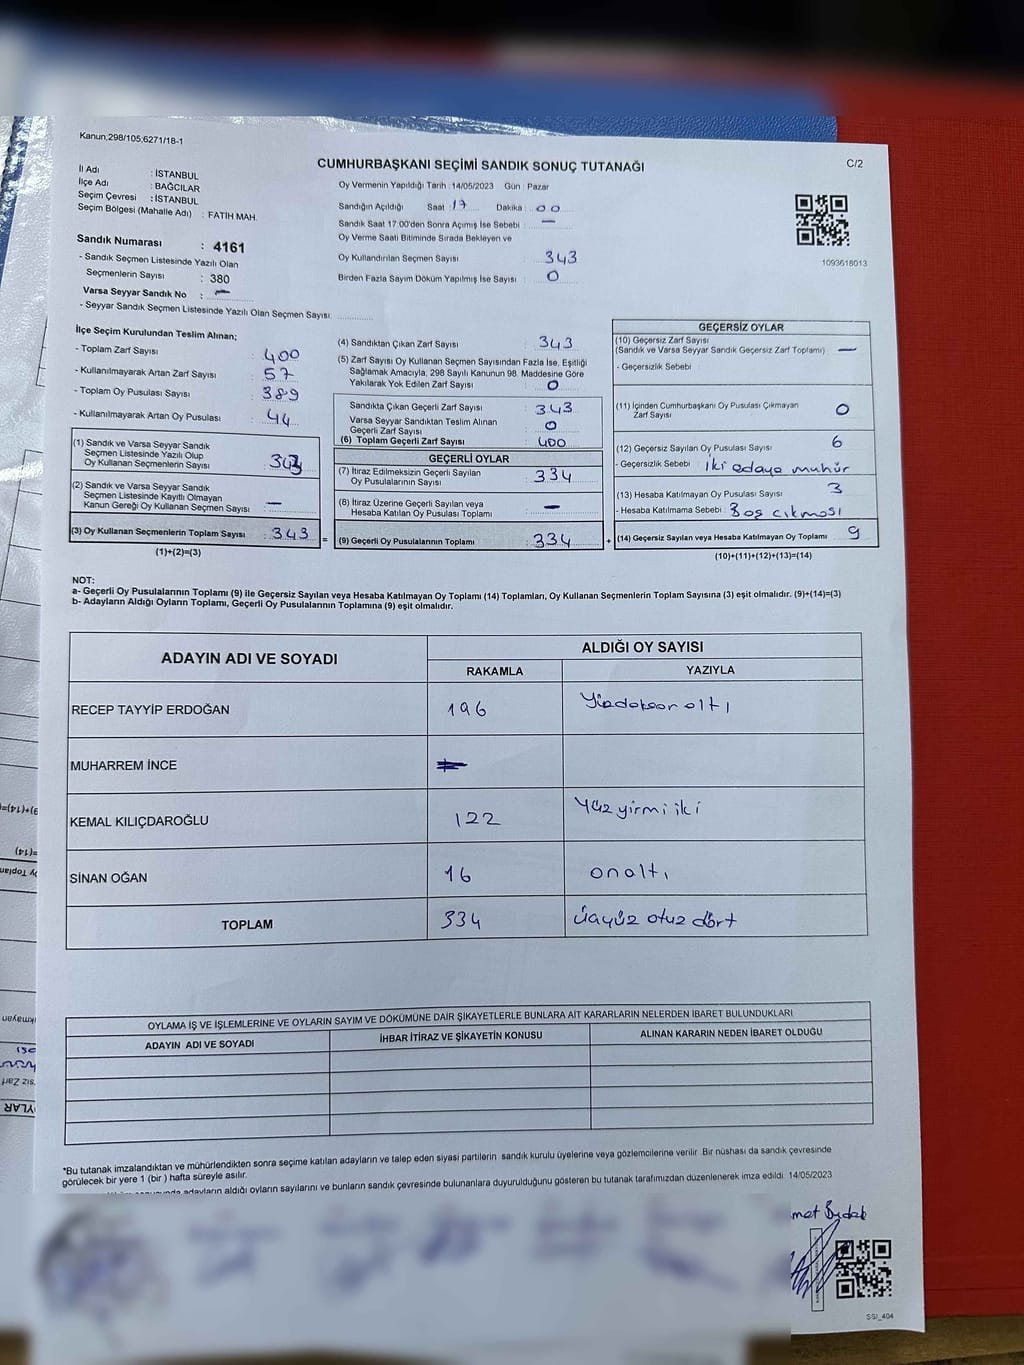 Kanun,298/105,6271/18-1
CUMHURBAŞKANI SEÇİMİ SANDIK SONUÇ TUTANAĞI
C/2
İl Adı : İSTANBUL
İlçe Adı : BAĞCILAR
Seçim Çevresi : İSTANBUL
Seçim Bölgesi (Mahalle Adı) : FATİH MAH.
Sandık Numarası : 4161
- Sandık Seçmen Listesinde Yazılı Olan
Seçmenlerin Sayısı : 380
Varsa Seyyar Sandık No : —
- Seyyar Sandık Seçmen Listesinde Yazılı Olan Seçmen Sayısı:
Oy Vermenin Yapıldığı Tarih : 14/05/2023 Gün : Pazar
Sandığın Açıldığı Saat 17 Dakika : 00
Sandık Saat 17:00'den Sonra Açımış İse Sebebi : —
Oy Verme Saati Bitiminde Sırada Bekleyen ve
Oy Kullandırılan Seçmen Sayısı : 343
Birden Fazla Sayım Döküm Yapılmış İse Sayısı : 0
1093618013
İlçe Seçim Kurulundan Teslim Alınan;
- Toplam Zarf Sayısı : 400
- Kullanılmayarak Artan Zarf Sayısı : 57
- Toplam Oy Pusulası Sayısı : 389
- Kullanılmayarak Artan Oy Pusulası : 44
(1) Sandık ve Varsa Seyyar Sandık
Seçmen Listesinde Yazılı Olup
Oy Kullanan Seçmenlerin Sayısı : 343
(2) Sandık ve Varsa Seyyar Sandık
Seçmen Listesinde Kayıtlı Olmayan
Kanun Gereği Oy Kullanan Seçmen Sayısı : —
(3) Oy Kullanan Seçmenlerin Toplam Sayısı : 343
(1)+(2)=(3)
(4) Sandıktan Çıkan Zarf Sayısı : 343
(5) Zarf Sayısı Oy Kullanan Seçmen Sayısından Fazla İse, Eşitliği
Sağlamak Amacıyla, 298 Sayılı Kanunun 98. Maddesine Göre
Yakılarak Yok Edilen Zarf Sayısı : 0
Sandıkta Çıkan Geçerli Zarf Sayısı : 343
Varsa Seyyar Sandıktan Teslim Alınan
Geçerli Zarf Sayısı : 0
(6) Toplam Geçerli Zarf Sayısı : 400
GEÇERLİ OYLAR
(7) İtiraz Edilmeksizin Geçerli Sayılan
Oy Pusulasının Sayısı : 334
(8) İtiraz Üzerine Geçerli Sayılan veya
Hesaba Katılan Oy Pusulası Toplamı : —
= (9) Geçerli Oy Pusulalarının Toplamı : 334 +
GEÇERSİZ OYLAR
(10) Geçersiz Zarf Sayısı
(Sandık ve Varsa Seyyar Sandık Geçersiz Zarf Toplamı) —
- Geçersizlik Sebebi
(11) İçinden Cumhurbaşkanı Oy Pusulası Çıkmayan
Zarf Sayısı 0
(12) Geçersiz Sayılan Oy Pusulası Sayısı 6
- Geçersizlik Sebebi : İki adaya muhür
(13) Hesaba Katılmayan Oy Pusulası Sayısı 3
- Hesaba Katılmama Sebebi : Boş çıkması
(14) Geçersiz Sayılan veya Hesaba Katılmayan Oy Toplamı 9
(10)+(11)+(12)+(13)=(14)
NOT:
a- Geçerli Oy Pusulalarının Toplamı (9) ile Geçersiz Sayılan veya Hesaba Katılmayan Oy Toplamı (14) Toplamları, Oy Kullanan Seçmenlerin Toplam Sayısına (3) eşit olmalıdır. (9)+(14)=(3)
b- Adayların Aldığı Oyların Toplamı, Geçerli Oy Pusulalarının Toplamına (9) eşit olmalıdır.
ADAYIN ADI VE SOYADI
ALDIĞI OY SAYISI
RAKAMLA YAZIYLA
RECEP TAYYİP ERDOĞAN 196 Yüzdoksan altı
MUHARREM İNCE
KEMAL KILIÇDAROĞLU 122 Yüz yirmi iki
SİNAN OĞAN 16 onaltı
TOPLAM 334 üçyüz otuz dört
OYLAMA İŞ VE İŞLEMLERİNE VE OYLARIN SAYIM VE DÖKÜMÜNE DAİR ŞİKAYETLERLE BUNLARA AİT KARARLARIN NELERDEN İBARET BULUNDUKLARI
ADAYIN ADI VE SOYADI İHBAR İTİRAZ VE ŞİKAYETİN KONUSU ALINAN KARARIN NEDEN İBARET OLDUĞU
*Bu tutanak imzalandıktan ve mühürlendikten sonra seçime katılan adayların ve talep eden siyasi partilerin sandık kurulu üyelerine veya gözlemcilerine verilir .Bir nüshası da sandık çevresinde
görülecek bir yere 1 (bir ) hafta süreyle asılır.
adayların aldığı oyların sayılarını ve bunların sandık çevresinde bulunanlara duyurulduğunu gösteren bu tutanak tarafımızdan düzenlenerek imza edildi. 14/05/2023
SSI_404